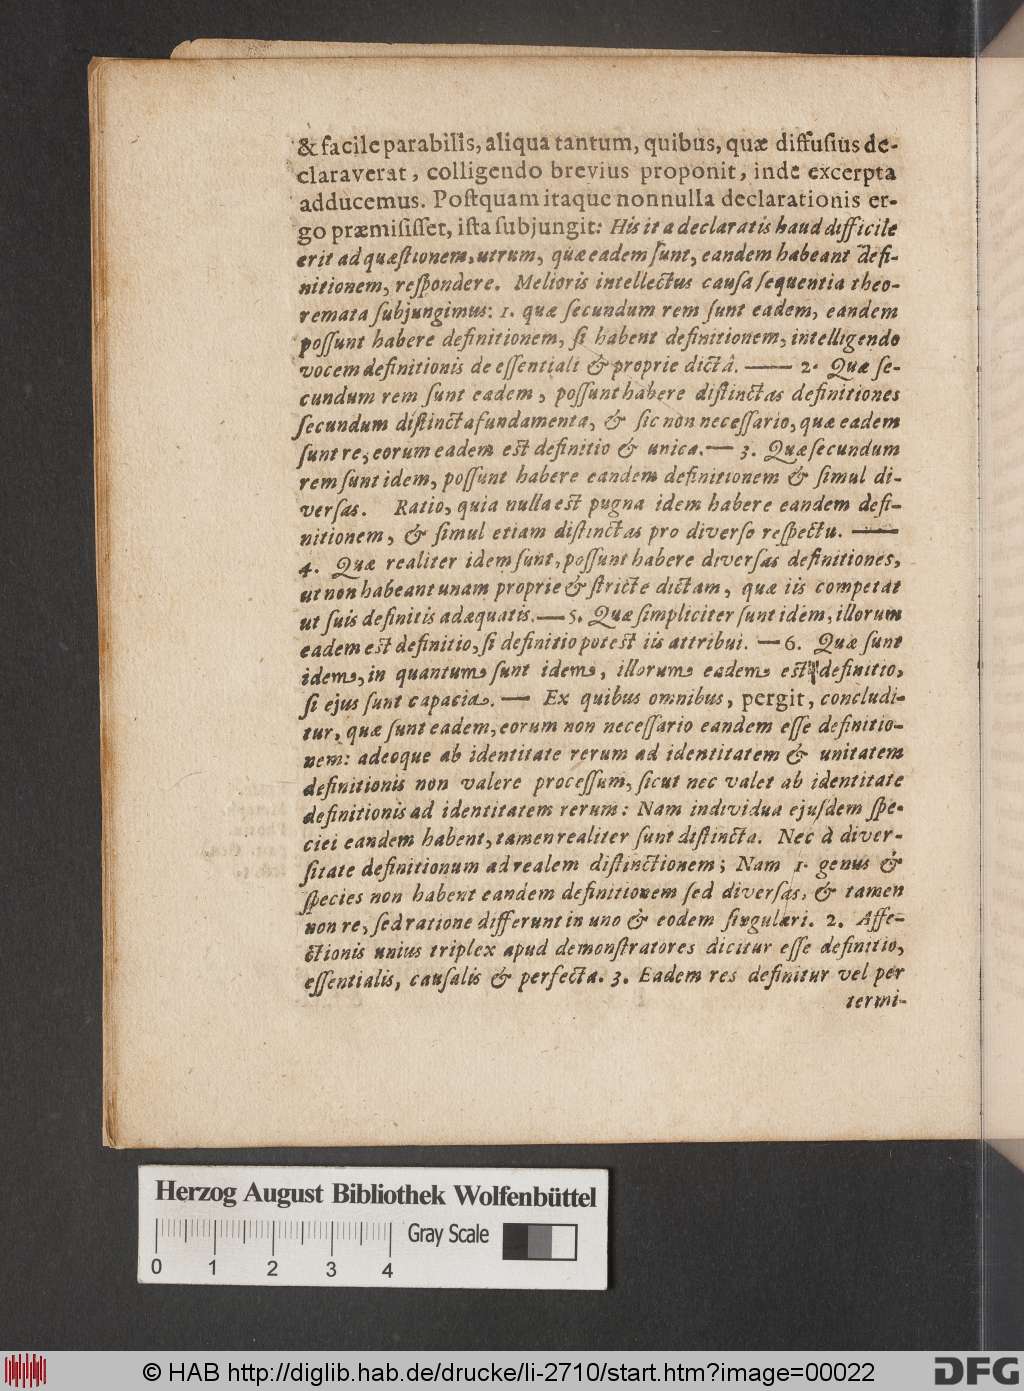 & facile parabilis, aliqua tantum, quibus, quæ diffuſius de-
claraverat, colligendo brevius proponit, inde excerpta
adducemus. Poſtquam itaque nonnulla declarationis er-
go præmiſiſſet, iſta ſubjungit: His ita declaratis haud difficile
erit ad quæſtionem, utrum, quæ eadem ſunt, eandem habeant defi-
nitionem, reſpondere. Melioris intellectus cauſa ſequentia theo-
remata ſubjungimus: 1. quæ ſecundum rem ſunt eadem, eandem
poſſunt habere definitionem, ſi habent definitionem, intelligendo
vocem definitionis de eſſentiali & proprie dictâ. —— 2. Quæ ſe-
cundum rem ſunt eadem, poſſunt habere diſtinctas definitiones
ſecundum diſtincta fundamenta, & ſic non neceſſario, quæ eadem
ſunt re, eorum eadem eſt definitio & unica. — 3. Quæ ſecundum
rem ſunt idem, poſſunt habere eandem definitionem & ſimul di-
verſas. Ratio, quia nulla eſt pugna idem habere eandem defi-
nitionem, & ſimul etiam diſtinctas pro diverſo reſpectu. ——
4. Quæ realiter idem ſunt, poſſunt habere diverſas definitiones,
ut non habeant unam proprie & ſtricte dictam, quæ iis competat
ut ſuis definitis adæquatis. — 5. Quæ ſimpliciter ſunt idem, illorum
eadem eſt definitio, ſi definitio poteſt iis attribui. — 6. Quæ ſunt
idem, in quantum ſunt idem, illorum eadem eſt definitio,
ſi ejus ſunt capacia. — Ex quibus omnibus, pergit, concludi-
tur, quæ ſunt eadem, eorum non neceſſario eandem eſſe definitio-
nem: adeoque ab identitate rerum ad identitatem & unitatem
definitionis non valere proceſſum, ſicut nec valet ab identitate
definitionis ad identitatem rerum: Nam individua ejuſdem ſpe-
ciei eandem habent, tamen realiter ſunt diſtincta. Nec à diver-
ſitate definitionum ad realem diſtinctionem; Nam 1. genus &
ſpecies non habent eandem definitionem ſed diverſas, & tamen
non re, ſed ratione differunt in uno & eodem ſingulari. 2. Affe-
ctionis unius triplex apud demonſtratores dicitur eſſe definitio,
eſſentialis, cauſalis & perfecta. 3. Eadem res definitur vel per
termi-
Herzog August Bibliothek Wolfenbüttel
Gray Scale
0 1 2 3 4
© HAB http://diglib.hab.de/drucke/li-2710/start.htm?image=00022
DFG